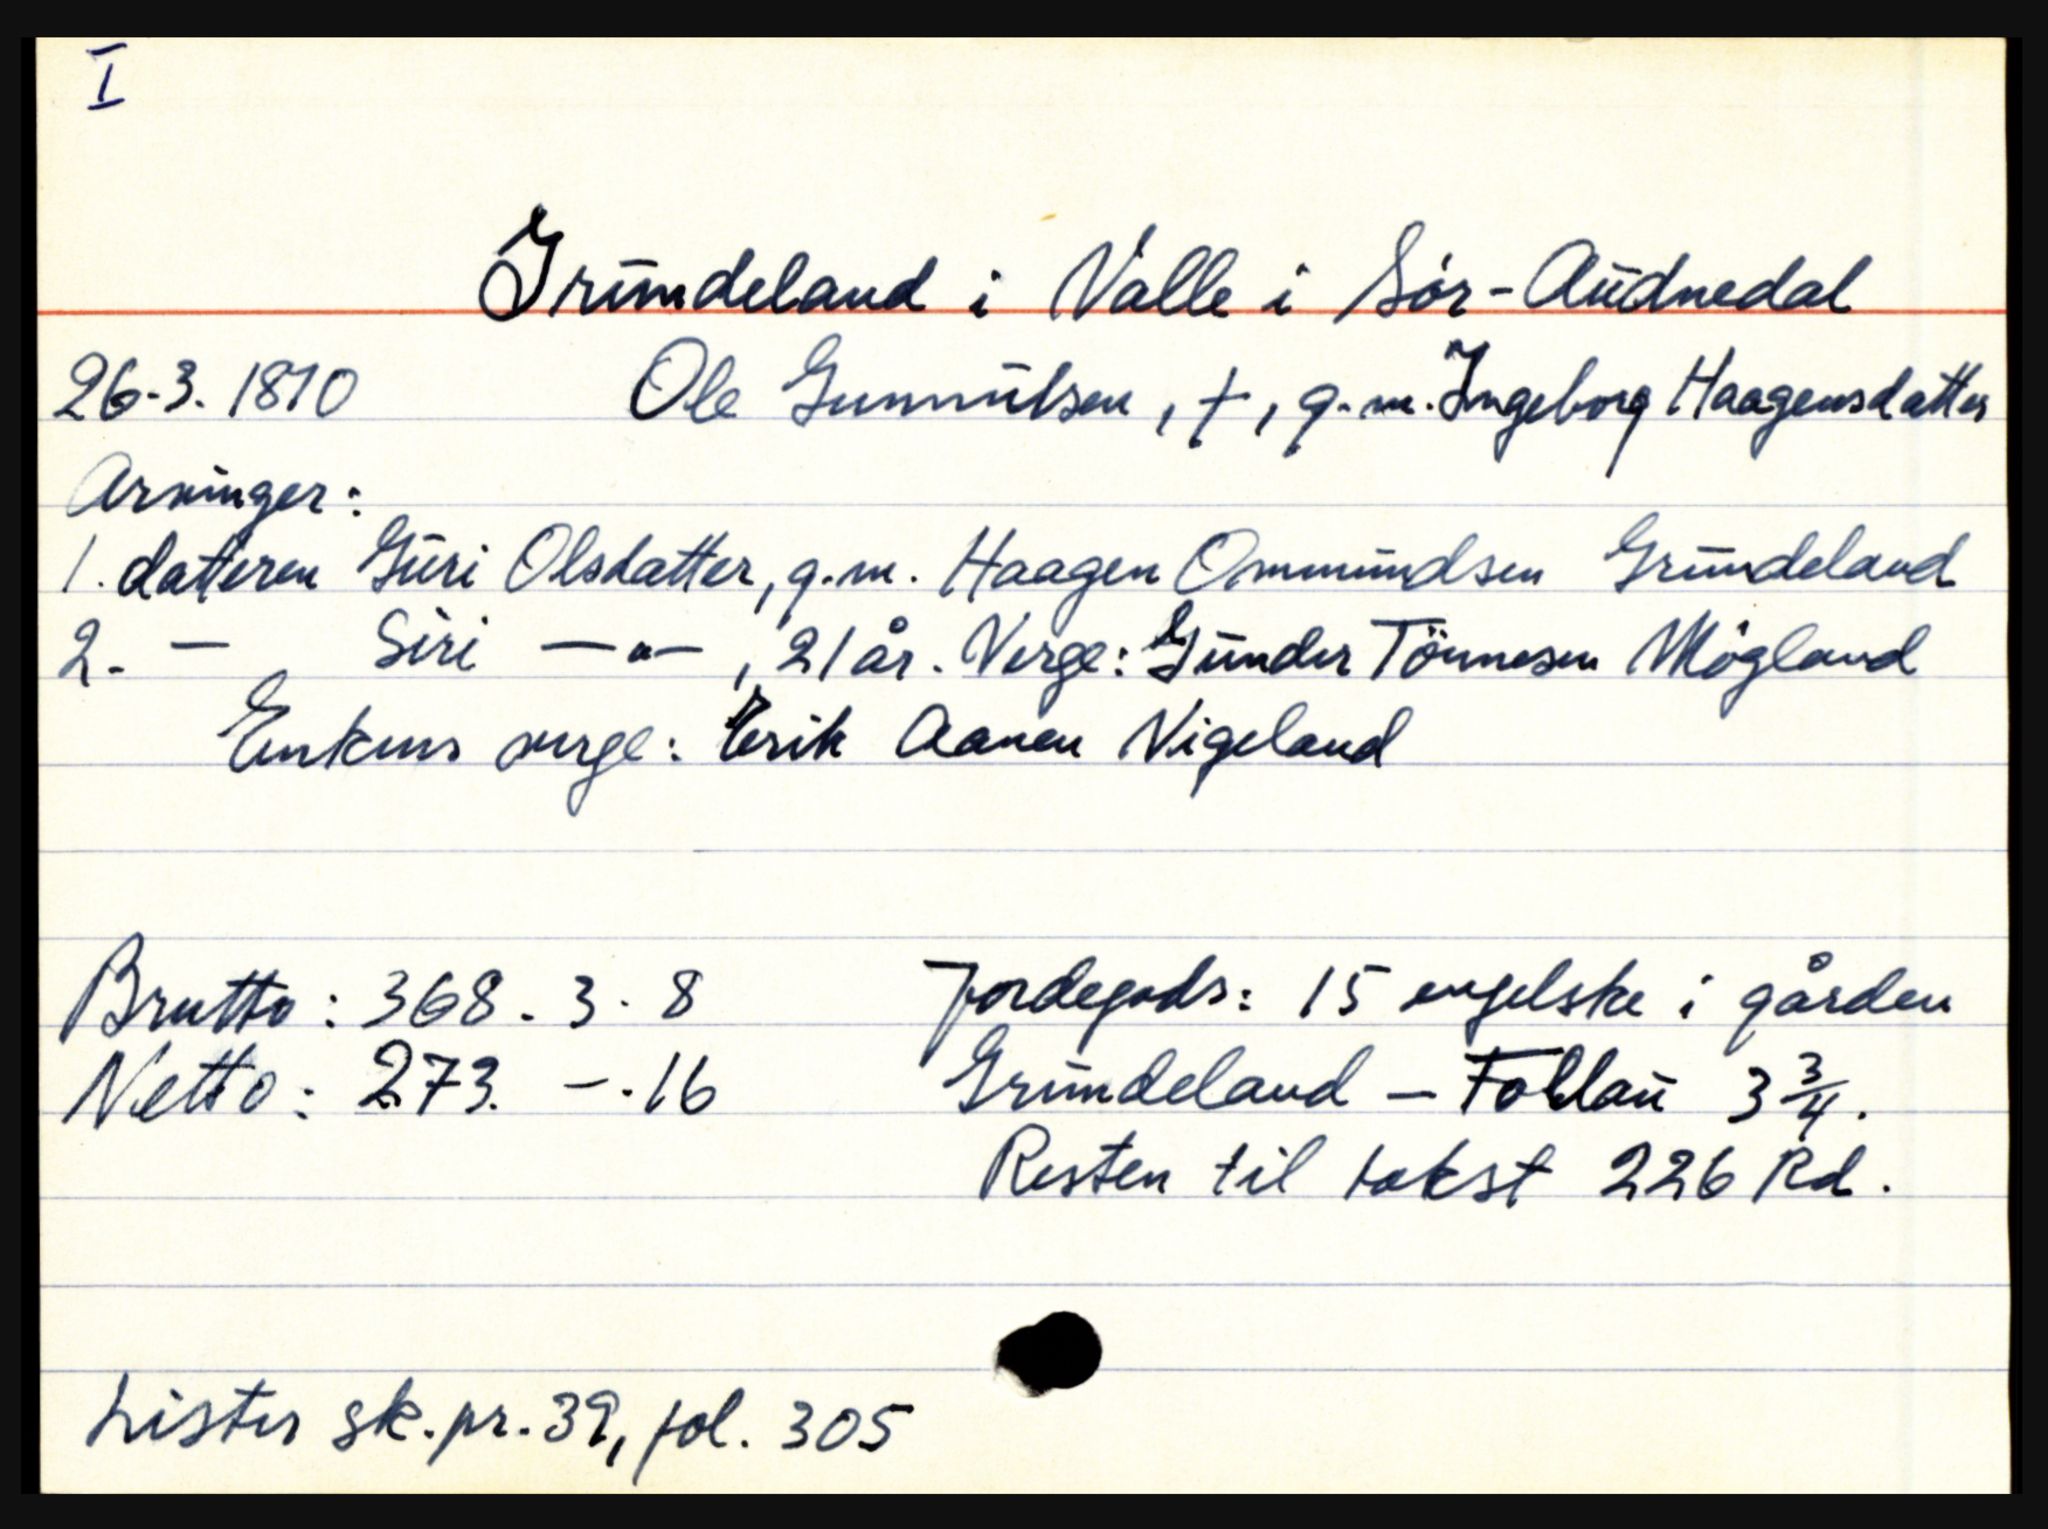 I
Grundeland i Valle i Sør-Audnedal
26.3.1810 Ole Gunnulsen, †, g.m. Ingeborg Haagensdatter
Arvinger:
1. datteren Guri Olsdatter, g.m. Haagen Ommundsen Grundeland
2. — Siri —"—, 21 år. Verge: Gunder Tönnesen Møgland
Enkens verge: Erik Aanen Vigeland
Brutto: 368.3.8 Jordegods: 15 engelske i gården
Netto: 273. –.16 Grundeland – Follau 3 3/4.
Resten til takst 226 Rd.
Lister sk.pr. 39, fol. 305